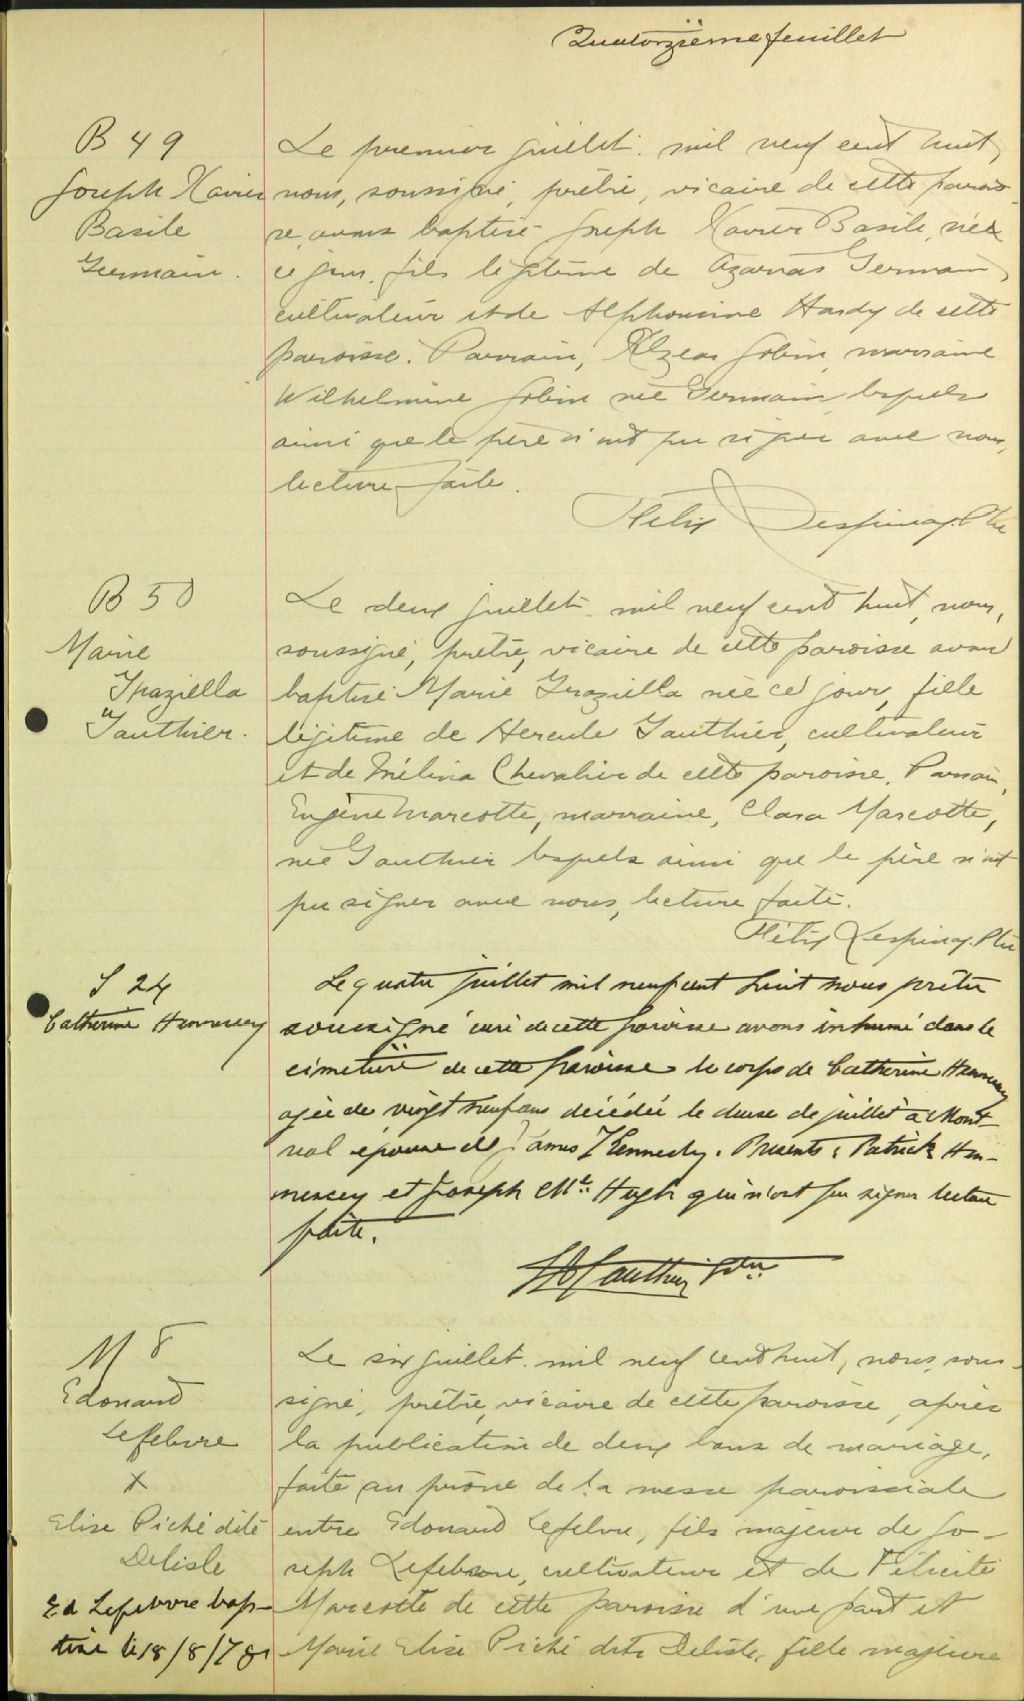 Quatorzième feuillet
B 49
Joseph Xavier
Basile
Germain.
Le premier juillet mil neuf cent huit,
nous, soussigné, prêtre, vicaire de cette parois-
se, avons baptisé Joseph Xavier Basile, né
ce jour, fils légitime de Azarias Germain,
cultivateur et de Alphonsine Hardy de cette
paroisse. Parrain, Elzear Gobin, marraine
Wilhelmine Gobin née Germain, lesquels
ainsi que le père n'ont pu signer avec nous,
lecture faite.
Félix Lespinay. Ptre
B 50
Marie
Graziella
Gauthier.
Le deux juillet mil neuf cent huit, nous,
soussigné, prêtre, vicaire de cette paroisse avons
baptisé Marie Graziella née ce jour, fille
légitime de Hercule Gauthier, cultivateur
et de Mélina Chevalier de cette paroisse. Parrain,
Eugène Marcotte, marraine, Clara Marcotte,
née Gauthier lesquels ainsi que le père n'ont
pu signer avec nous, lecture faite.
Félix Lespinay. Ptre
S 24
Catherine Hennessey
Le quatre juillet mil neuf cent huit nous prêtre
soussigné curé de cette paroisse avons inhumé dans le
cimetière de cette paroisse le corps de Catherine Hennessey
agée de vingt neuf ans décédée le deux de juillet à Mont-
réal épouse de James Kennedy. Présents: Patrick Hen-
nessey et Joseph Mc Hugh qui n'ont pu signer lecture
faite.
Gauthier Ptre
M 8
Edouard
Lefebvre
X
Elise Piché dite
Delisle
Ed Lefebvre bap-
tisé le 18/8/78
Le six juillet mil neuf cent huit, nous, sous-
signé, prêtre, vicaire de cette paroisse, après
la publication de deux bans de mariage,
faite au prône de la messe paroissiale
entre Edouard Lefebvre, fils majeur de Jo-
seph Lefebvre, cultivateur et de Félicité
Marcotte de cette paroisse d'une part et
Marie Elise Piché dite Delisle, fille majeure